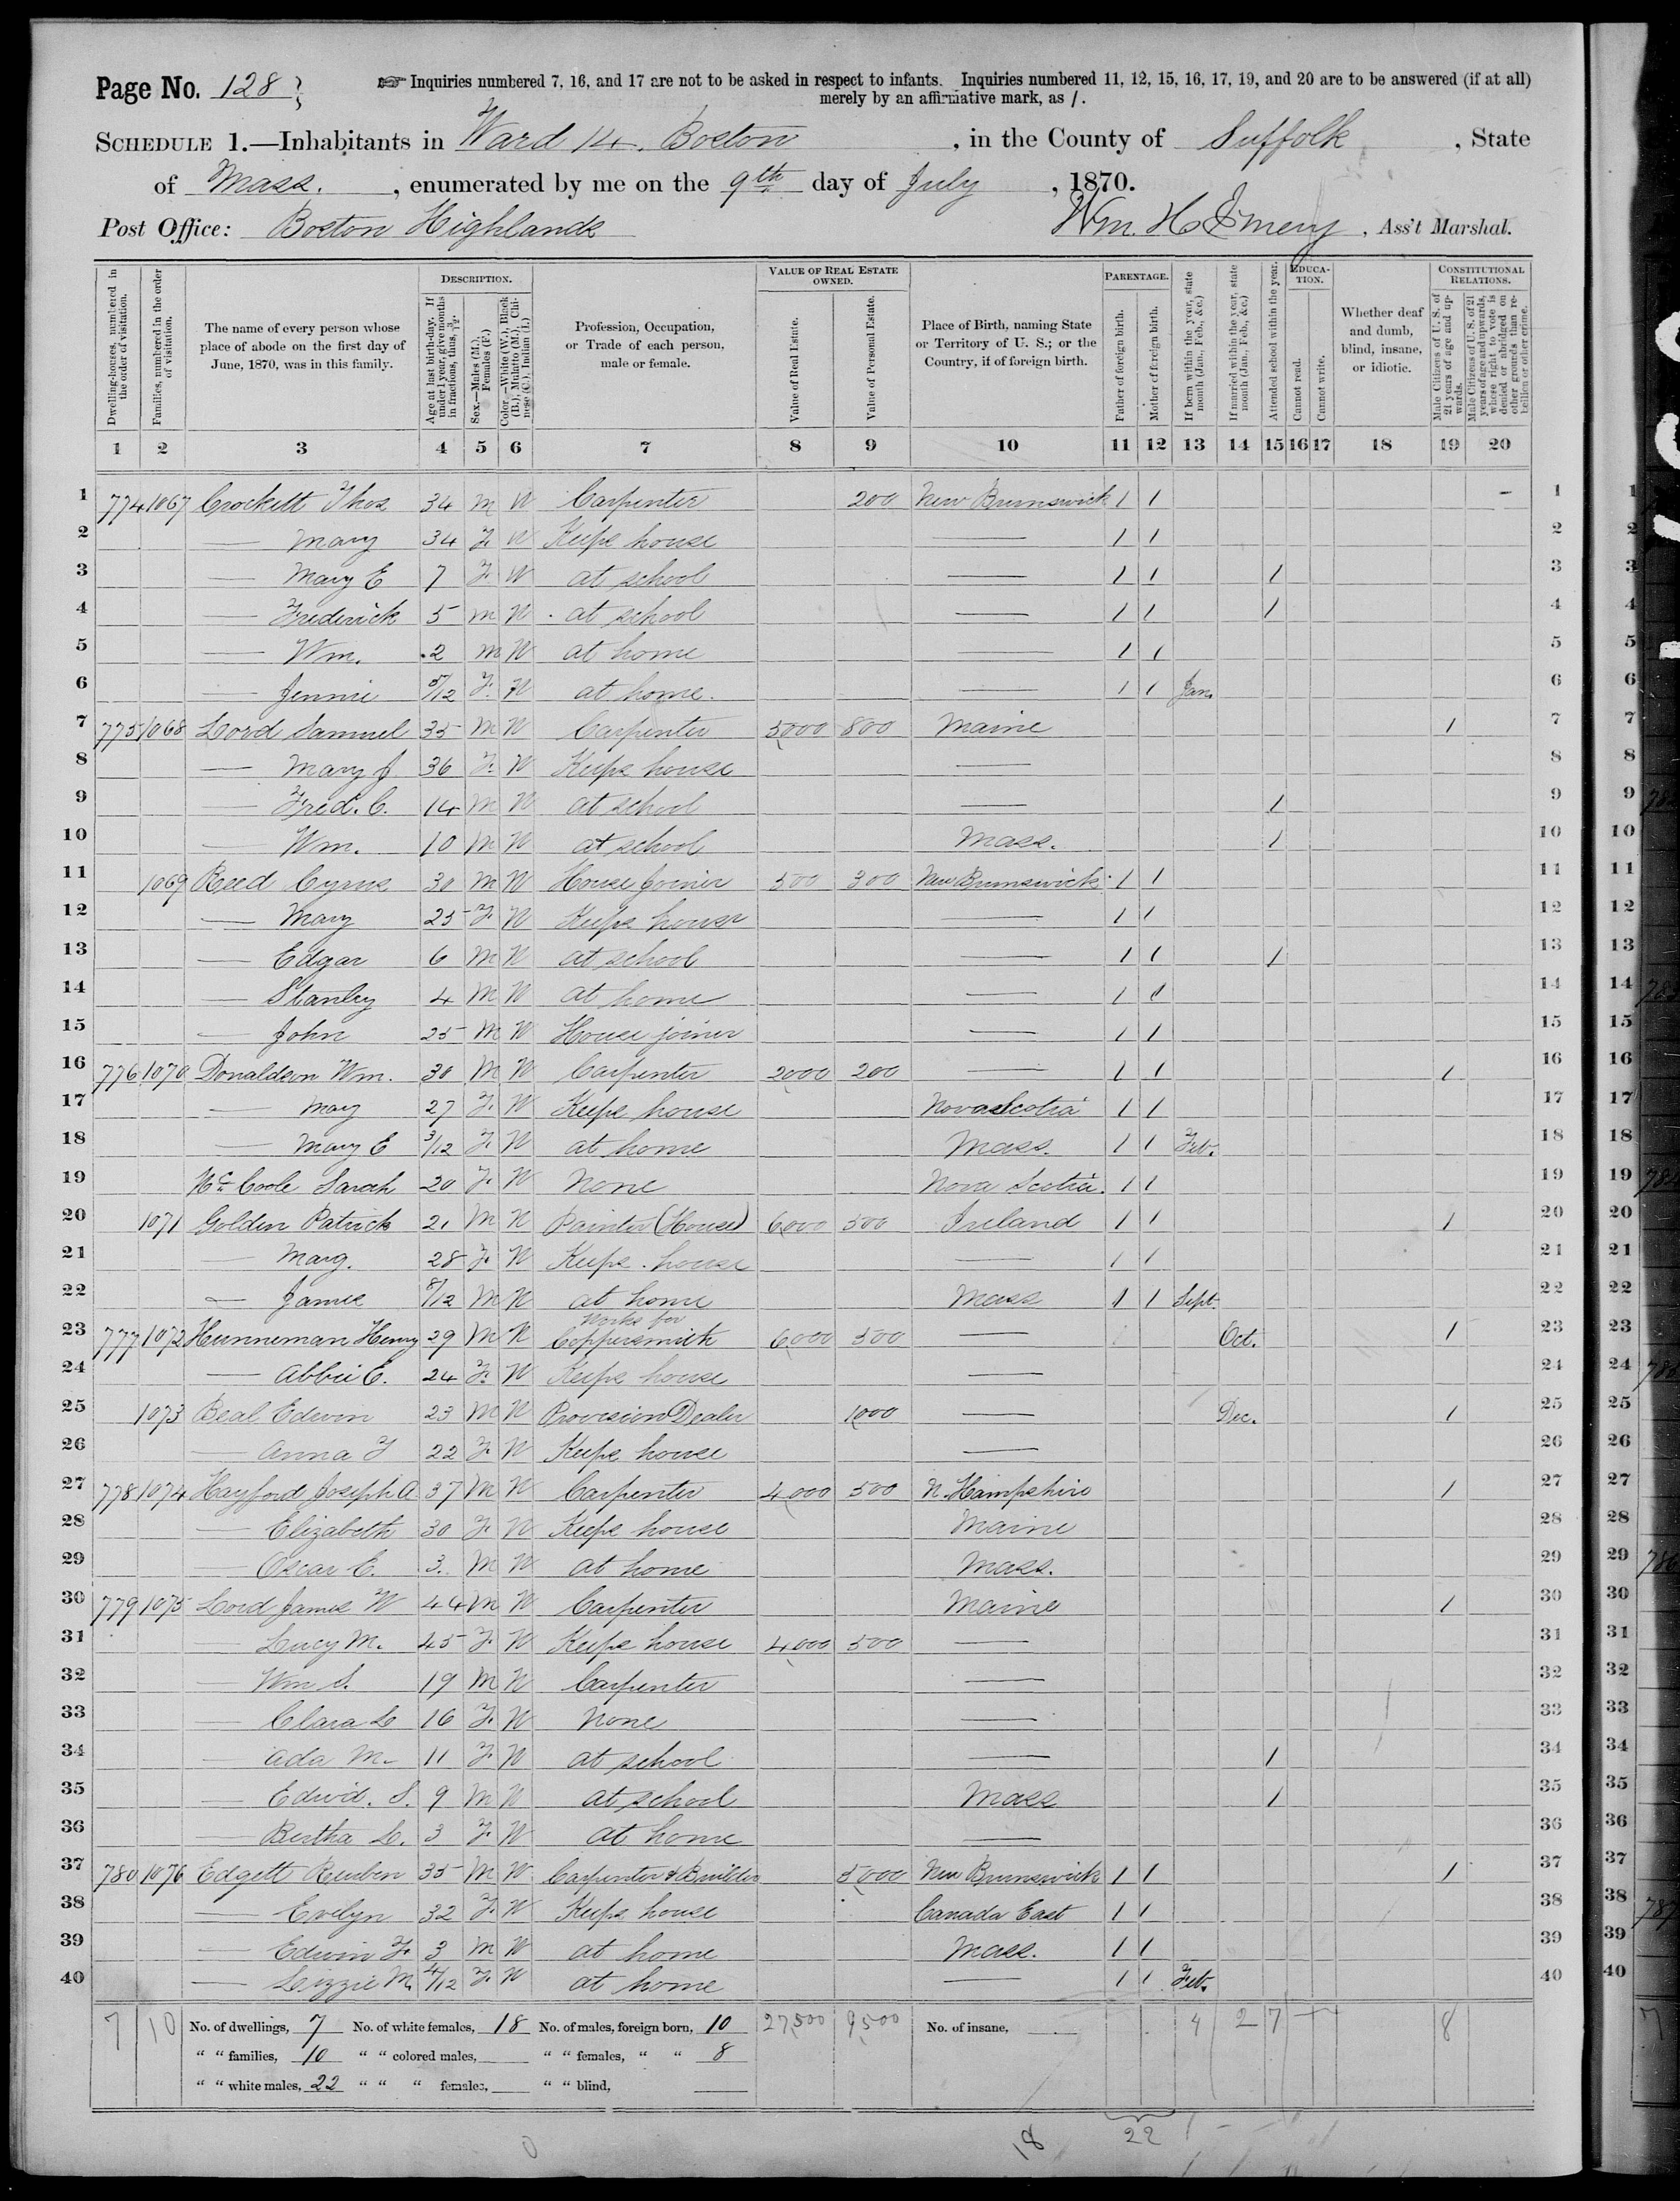 Page No. 128
☞ Inquiries numbered 7, 16, and 17 are not to be asked in respect to infants. Inquiries numbered 11, 12, 15, 16, 17, 19, and 20 are to be answered (if at all)
merely by an affirmative mark, as /.
SCHEDULE 1.—Inhabitants in Ward 14. Boston, in the County of Suffolk, State
of Mass., enumerated by me on the 9th day of July, 1870.
Post Office: Boston Highlands Wm. H. Emery, Ass't Marshal.
Dwelling-houses, numbered in the order of visitation.
Families, numbered in the order of visitation.
The name of every person whose place of abode on the first day of June, 1870, was in this family.
DESCRIPTION.
Age at last birth-day. If under 1 year, give months in fractions, thus, 3/12.
Sex.—Males (M.), Females (F.)
Color.—White (W.), Black (B.), Mulatto (M.), Chinese (C.), Indian (I.)
Profession, Occupation, or Trade of each person, male or female.
VALUE OF REAL ESTATE OWNED.
Value of Real Estate.
Value of Personal Estate.
Place of Birth, naming State or Territory of U. S.; or the Country, if of foreign birth.
PARENTAGE.
Father of foreign birth.
Mother of foreign birth.
If born within the year, state month (Jan., Feb., &c.)
If married within the year, state month (Jan., Feb., &c.)
Attended school within the year.
EDUCATION.
Cannot read.
Cannot write.
Whether deaf and dumb, blind, insane, or idiotic.
CONSTITUTIONAL RELATIONS.
Male Citizens of U. S. of 21 years of age and upwards.
Male Citizens of U. S. of 21 years of age and upwards, whose right to vote is denied or abridged on other grounds than rebellion or other crime.
1 2 3 4 5 6 7 8 9 10 11 12 13 14 15 16 17 18 19 20
1 774 1067 Crockett Thos 34 M W Carpenter 200 New Brunswick 1 1 — 1
2 — Mary 34 F. W Keeps house — 1 1 2
3 — Mary E 7 F. W at school — 1 1 1 3
4 — Frederick 5 M W at school — 1 1 1 4
5 — Wm. 2 M W at home — 1 1 5
6 — Jennie 5/12 F. W at home. — 1 1 Jan. 6
7 775 1068 Lord Samuel 35 M W Carpenter 5000 800 Maine 1 7
8 — Mary J 36 F. W Keeps house — 8
9 — Fred. C. 14 M W at school — 1 9
10 — Wm. 10 M W at school Mass. 1 10
11 1069 Reed Cyrus 30 M W House Joiner 500 300 New Brunswick 1 1 11
12 — Mary 25 F. W Keeps house — 1 1 12
13 — Edgar 6 M W at school — 1 1 1 13
14 — Stanley 4 M W at home — 1 1 14
15 — John 25 M W House joiner — 1 1 15
16 776 1070 Donaldson Wm. 30 M W Carpenter 2000 200 — 1 1 1 16
17 — Mary 27 F. W Keeps house Nova Scotia 1 1 17
18 — Mary E 3/12 F. W at home Mass. 1 1 Feb. 18
19 Mc Coole Sarah 20 F. W None Nova Scotia. 1 1 19
20 1071 Golden Patrick 21 M W Painter (House) 6000 500 Ireland 1 1 1 20
21 — Marg. 28 F. W Keeps house — 1 1 21
22 — James 8/12 M W at home Mass 1 1 Sept. 22
23 777 1072 Hunneman Henry 29 M W Works for Coppersmith 6000 500 — Oct. 1 23
24 — Abbie E. 24 F. W Keeps house — 24
25 1073 Beal Edwin 23 M W Provision Dealer 1000 — Dec. 1 25
26 — Anna F 22 F. W Keeps house — 26
27 778 1074 Hayford Joseph A 37 M W Carpenter 4000 500 N. Hampshire 1 27
28 — Elizabeth 30 F. W Keeps house Maine 28
29 — Oscar E. 3. M W at home Mass. 29
30 779 1075 Lord James W 44 M W Carpenter Maine 1 30
31 — Lucy M. 45 F. W Keeps house 4000 500 — 31
32 — Wm S. 19 M W Carpenter — 32
33 — Clara L 16 F. W None — 33
34 — Ada M. 11 F. W at school — 1 34
35 — Edwd. S. 9 M W at school Mass 1 35
36 — Bertha L. 3 F. W at home — 36
37 780 1076 Edgett Reuben 35 M W Carpenter & Builder 5000 New Brunswick 1 1 1 37
38 — Evelyn 32 F. W Keeps house Canada East 1 1 38
39 — Edwin F. 3 M W at home Mass. 1 1 39
40 — Lizzie M. 4/12 F. W at home — 1 1 Feb. 40
7 10 No. of dwellings, 7 No. of white females, 18 No. of males, foreign born, 10 27,500 9,500 No. of insane, 4 2 7 8
" " families, 10 " " colored males, " " females, " " 8
" " white males, 22 " " " females, " " blind,
18 22